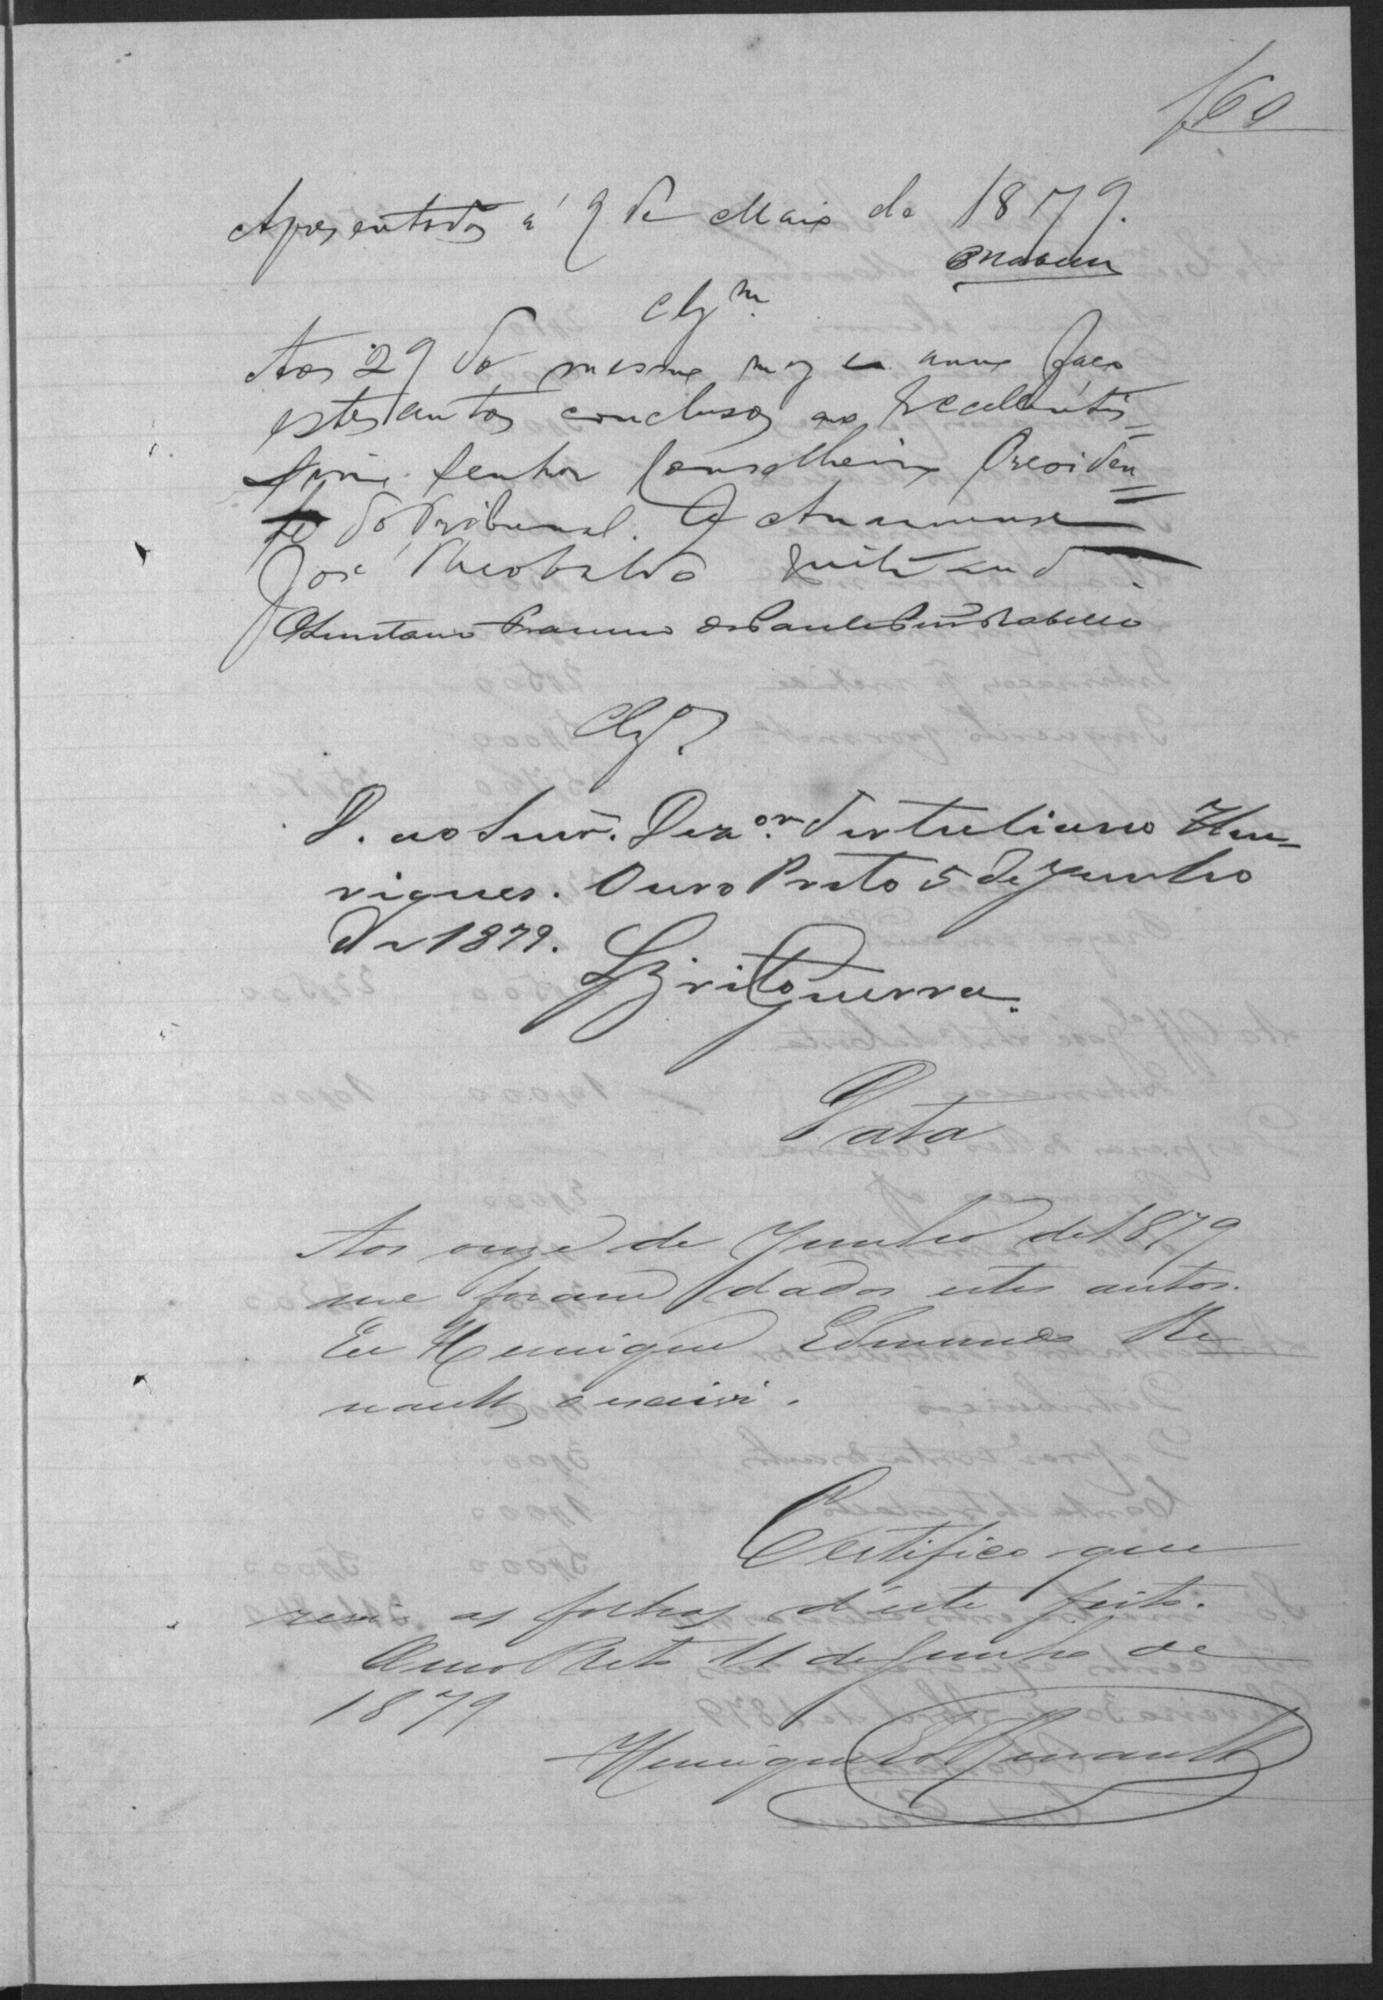 160
Apresentados a 9 de Maio de 1879.
Clz.m
Aos 29 do mesmo mez e anno faço
estes autos conclusos ao Excellentis=
simo Senhor Conselheiro Presiden=
te do Tribunal. O Amanuense
José Theobaldo
Clz.
D. ao Snr. Dez.or Tertuliano Hen-
riques. Ouro Preto 5 de Junho
de 1879.
LBritoGuerra.
Data
Aos onze de Junho de 1879
me foram dados estes autos.
Eu Henrique Edmundo Re
nault, o escrivi.
Certifico que
revi as folhas d'este feito.
Ouro Preto 11 de Junho de
1879
Henrique Ed Renault